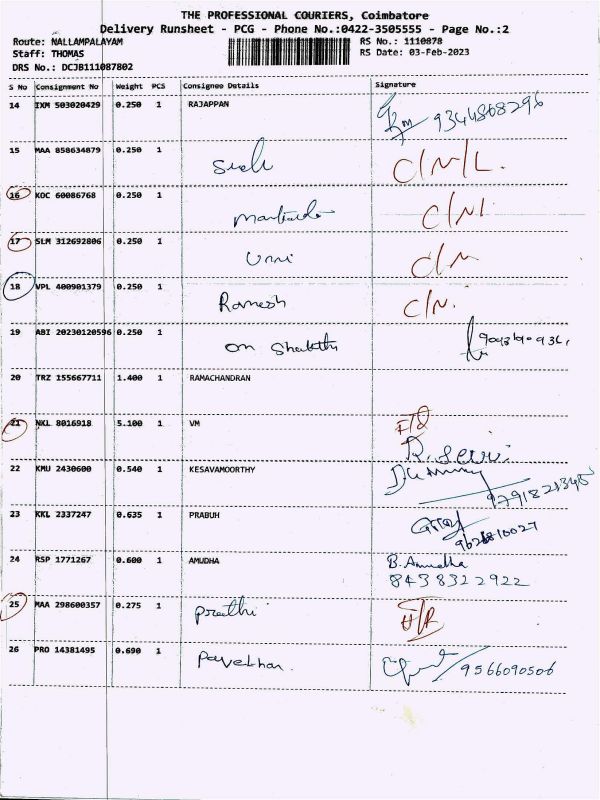 THE PROFESSIONAL COURIERS, Coimbatore
Delivery Runsheet - PCG - Phone No.:0422-3505555 - Page No.:2
Route: NALLAMPALAYAM RS No.: 1110878
Staff: THOMAS RS Date: 03-Feb-2023
DRS No.: DCJB111087802
S No Consignment No Weight PCS Consignee Details Signature
14 IXM 503020429 0.250 1 RAJAPPAN 9344868296
15 MAA 858634879 0.250 1 C/N/L.
16 KOC 60086768 0.250 1 C/N/
17 SLM 312692806 0.250 1 Unni C/N
18 VPL 400901379 0.250 1 Ramesh C/N.
19 ABI 20230120596 0.250 1 Om Shakthi
20 TRZ 155667711 1.400 1 RAMACHANDRAN
21 NKL 8016918 5.100 1 VM
22 KMU 2430600 0.540 1 KESAVAMOORTHY
23 KKL 2337247 0.635 1 PRABUH
24 RSP 1771267 0.600 1 AMUDHA B. Amudha
8438322922
25 MAA 298600357 0.275 1 Preethi
26 PRO 14381495 0.690 1 9566090506